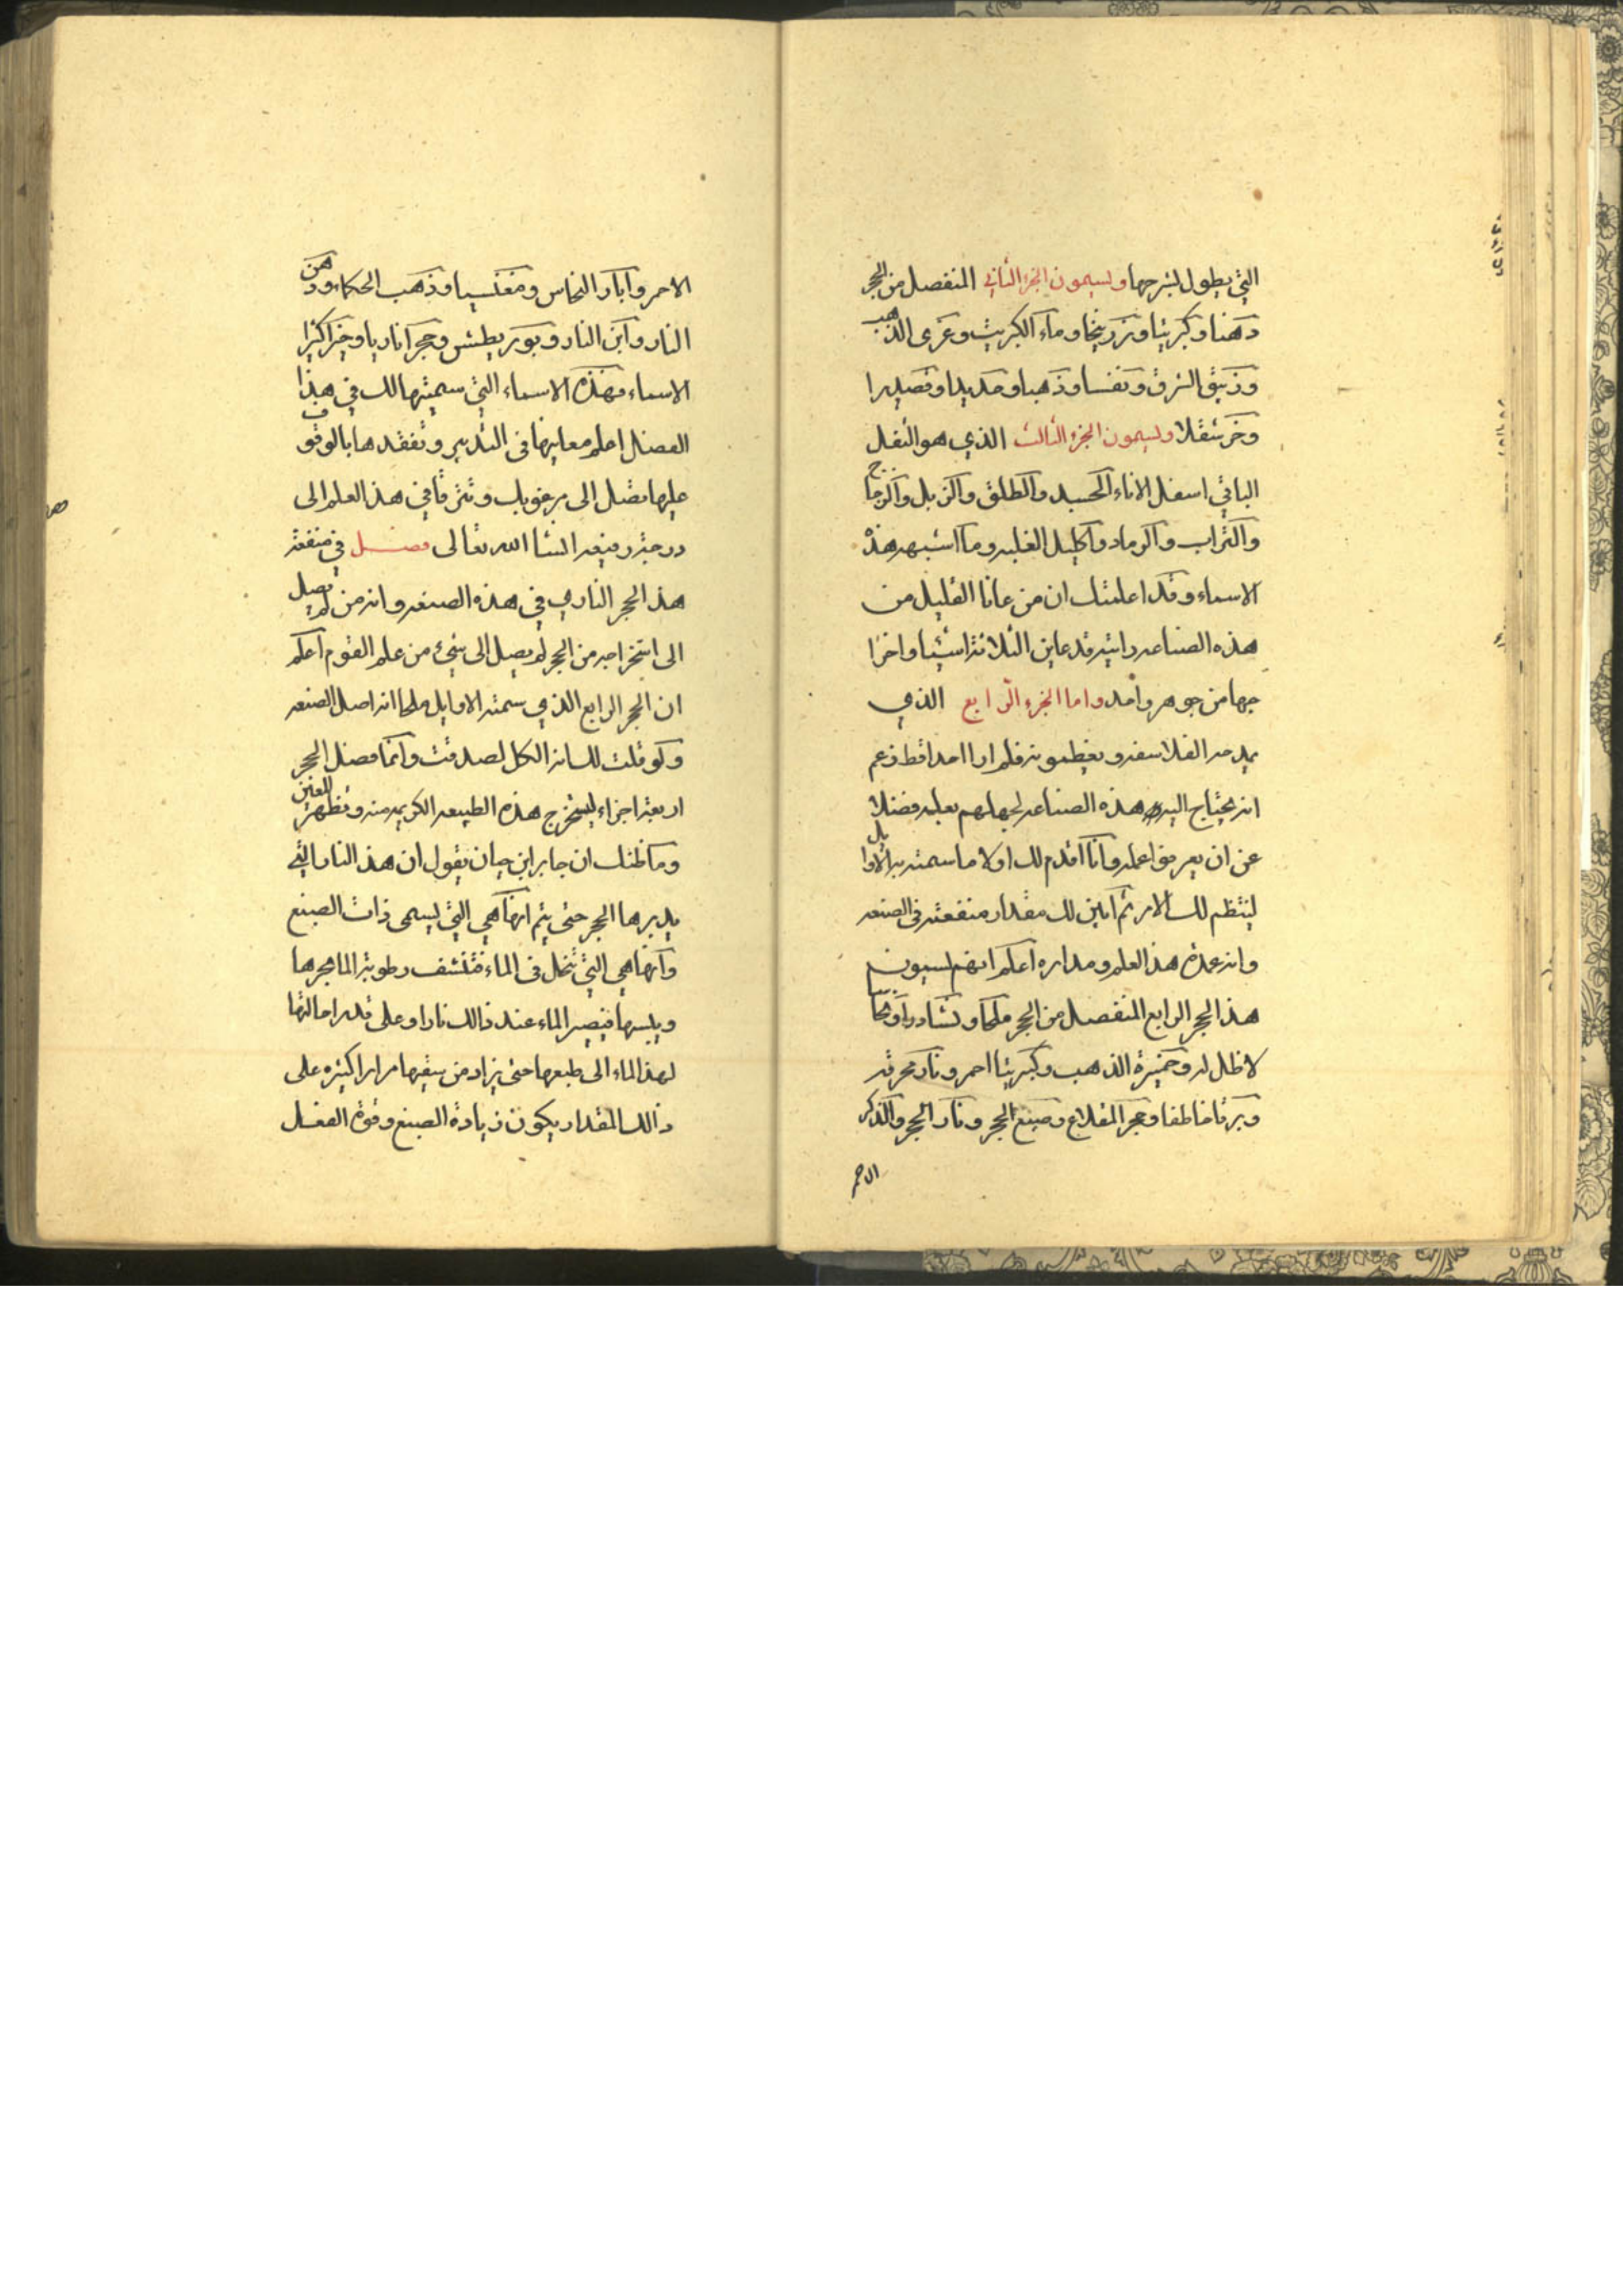 التي يطول بشرحها ويسمون الجزء الثاني المنفصل من الحجر
دهنا وكبريتا وزرنيخا وماء الكبريت وغرى الذهب
وزيبق الشرق ونفسا وذهبا وحديدا وقصديرا
وخرشقلا ويسمون الجزء الثالث الذي هو الثفل
الباقي اسفل الاناء الجسد والطلق والزبل والزجاج
والتراب والرماد واكليل الغلبه وما اشبه هذه
الاسماء وقد اعلمتك ان من عانا القليل من
هذه الصناعه رايته قد عاين الثلاثة اشيا واخرا
جها من جوهر واحد واما الجزء الرابع الذي
يمدحه الفلاسفه ويغطونه فلم ارا احدا قط زعم
انه يحتاج اليه هذه الصناعه لجهلهم بعلمه فضلا
عن ان يعرفوا عمله وانا اقدم لك اولا ما سمته به الاوايل
لينتظم لك الامر ثم ابين لك مقدار منفعته في الصنعه
وانه عمدة هذ العلم ومداره اعلم انهم يسمون
هذ الحجر الرابع المنفصل من الحجر ملحا ونشادرا ونحاسا
لا ظل له وخميرة الذهب وكبريتا احمر ونار محرقه
وبرقا خاطفا وحجر المقلاع وصبغ الحجر ونار الحجر والذكر
الاحمر
الاحمر وابار النحاس ومغنسيا وذهب الحكماء ودهن
النار وابن النار وبوريطش وحجرا ناريا وخيرا كثيرا
الاسماء فهذه الاسماء التي سميتها لك في هذا
الفصل اعلم معانيها في التدبير وتفقدها بالوقوف
عليها تصل الى مرغوبك وتترقا في هذ العلم الى
درجة رفيعه انشا الله تعالى فصل في منفعة
هذ الحجر الناري في هذه الصنعه وانه من لم يصل
الى استخراجه من الحجر لم يصل الى شيء من علم القوم اعلم
ان الحجر الرابع الذي سمته الاوايل ملحا انه اصل الصنعه
ولو قلت لك انه الكل لصدقت وانما فصل الحجر
اربعة اجزاء ليستخرج هذه الطبيعه الكريمه منه وتظهر للعين
وما ظنك ان جابر ابن حيان يقول ان هذ النار التي
يدبر ها الحجر حتى يتم انها هي التي يسمى ذات الصبغ
وانها هي التي تنحل في الماء فتنشف رطوبة الما بحرها
ويبسها فيصير الماء عند ذالك نارا وعلى قدر احالتها
لهذ الماء الى طبعها حتى يزاد من سقيها مرارا كثيره على
ذالك المقدار يكون زيادة الصبغ وقوة الفعل